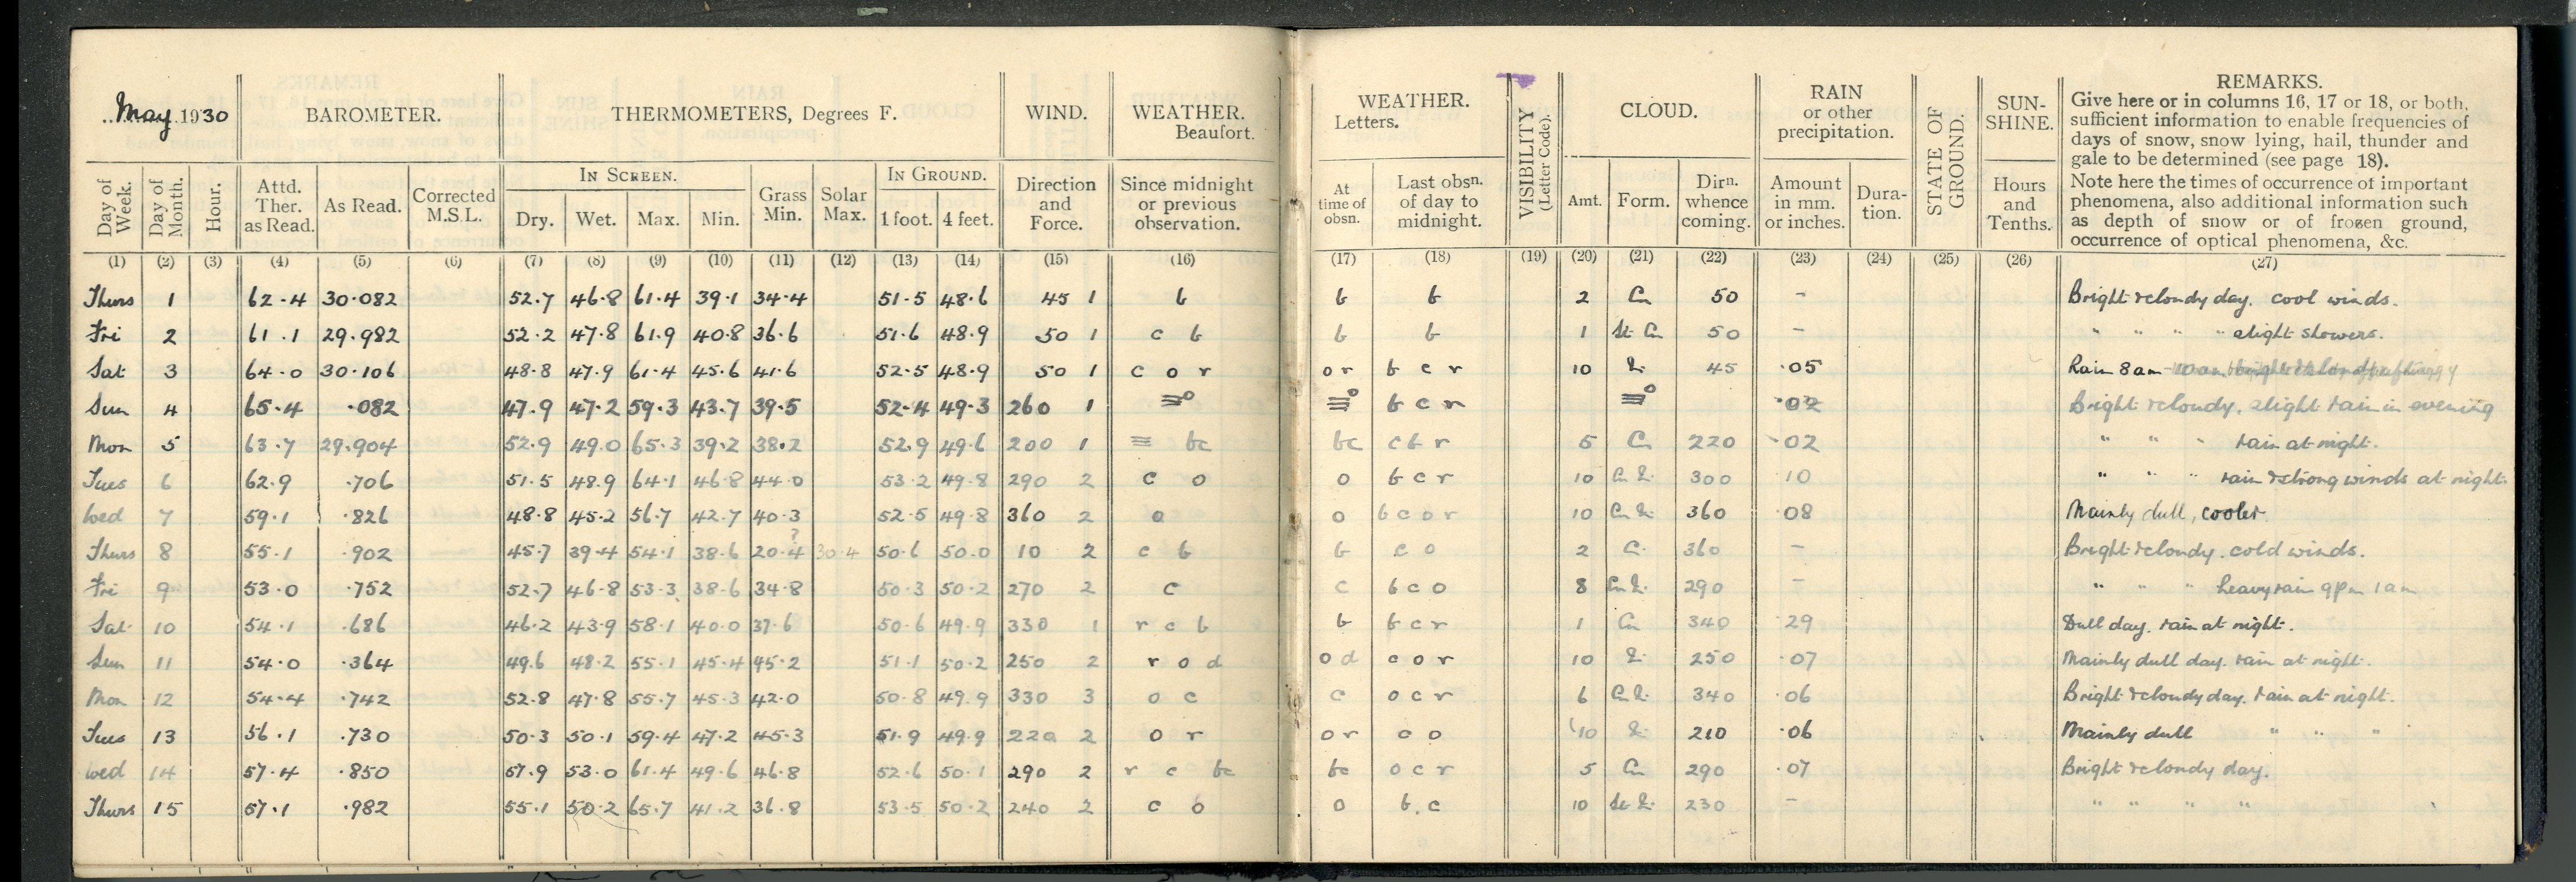 May 1930 BAROMETER. THERMOMETERS, Degrees F. WIND. WEATHER. Beaufort. WEATHER. Letters. VISIBILITY (Letter Code). CLOUD. RAIN or other precipitation. STATE OF GROUND. SUN-SHINE. REMARKS.
Give here or in columns 16, 17 or 18, or both,
sufficient information to enable frequencies of
days of snow, snow lying, hail, thunder and
gale to be determined (see page 18).
Note here the times of occurrence of important
phenomena, also additional information such
as depth of snow or of frozen ground,
occurrence of optical phenomena, &c.
Day of Week. Day of Month. Hour. Attd. Ther. as Read. As Read. Corrected M.S.L. IN SCREEN. Dry. Wet. Max. Min. Grass Min. Solar Max. IN GROUND. 1 foot. 4 feet. Direction and Force. Since midnight or previous observation. At time of obsn. Last obsn. of day to midnight. Amt. Form. Dirn. whence coming. Amount in mm. or inches. Dura-tion. Hours and Tenths.
(1) (2) (3) (4) (5) (6) (7) (8) (9) (10) (11) (12) (13) (14) (15) (16) (17) (18) (19) (20) (21) (22) (23) (24) (25) (26) (27)
Thurs 1 62.4 30.082 52.7 46.8 61.4 39.1 34.4 51.5 48.6 45 1 b b b 2 Cu 50 - Bright & cloudy day. cool winds.
Fri 2 61.1 29.982 52.2 47.8 61.9 40.8 36.6 51.6 48.9 50 1 c b b b 1 St Cu 50 - " " " " slight showers.
Sat 3 64.0 30.106 48.8 47.9 61.4 45.6 41.6 52.5 48.9 50 1 c o r o r b c r 10 45 .05 Rain 8am
Sun 4 65.4 .082 47.9 47.2 59.3 43.7 39.5 52.4 49.3 260 1 ≡° ≡° b c r ≡° .02 Bright & cloudy, slight rain in evening
Mon 5 63.7 29.904 52.9 49.0 65.3 39.2 38.2 52.9 49.6 200 1 ≡ bc bc c b r 5 Cu 220 .02 " " " rain at night.
Tues 6 62.9 .706 51.5 48.9 64.1 46.8 44.0 53.2 49.8 290 2 c o o b c r 10 Cu 300 10 " " " rain & strong winds at night.
Wed 7 59.1 .826 48.8 45.2 56.7 42.7 40.3 52.5 49.8 360 2 o o b c o r 10 Cu 360 .08 Mainly dull, cooler
Thurs 8 55.1 .902 45.7 39.4 54.1 38.6 20.4 ? 30.4 50.6 50.0 10 2 c b b c o 2 C. 360 - Bright & cloudy. cold winds.
Fri 9 53.0 .752 52.7 46.8 53.3 38.6 34.8 50.3 50.2 270 2 c c b c o 8 Cu 290 - " " " heavy rain 9pm 1am
Sat 10 54.1 .686 46.2 43.9 58.1 40.0 37.6 50.6 49.9 330 1 r c b b b c r 1 Cu 340 29 Dull day. rain at night.
Sun 11 54.0 .364 49.6 48.2 55.1 45.4 45.2 51.1 50.2 250 2 r o d o d c o r 10 250 .07 Mainly dull day. rain at night.
Mon 12 54.4 .742 52.8 47.8 55.7 45.3 42.0 50.8 49.9 330 3 o c c o c r 6 Cu 340 .06 Bright & cloudy day. rain at night.
Tues 13 56.1 .730 50.3 50.1 59.4 47.2 45.3 51.9 49.9 220 2 o r o r c o 10 210 .06 Mainly dull " " "
Wed 14 57.4 .850 57.9 53.0 61.4 49.6 46.8 52.6 50.1 290 2 r c bc bc o c r 5 Cu 290 .07 Bright & cloudy day.
Thurs 15 57.1 .982 55.1 50.2 65.7 41.2 36.8 53.5 50.2 240 2 c o o b.c 10 St 230 - " " " "